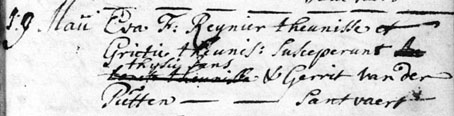 19 Maii Eva F: Reynier theunisse et
Grietie theunes: Susceperunt
thysis Jans
theunisse & Gerrit van der
Putten — — Santvaert